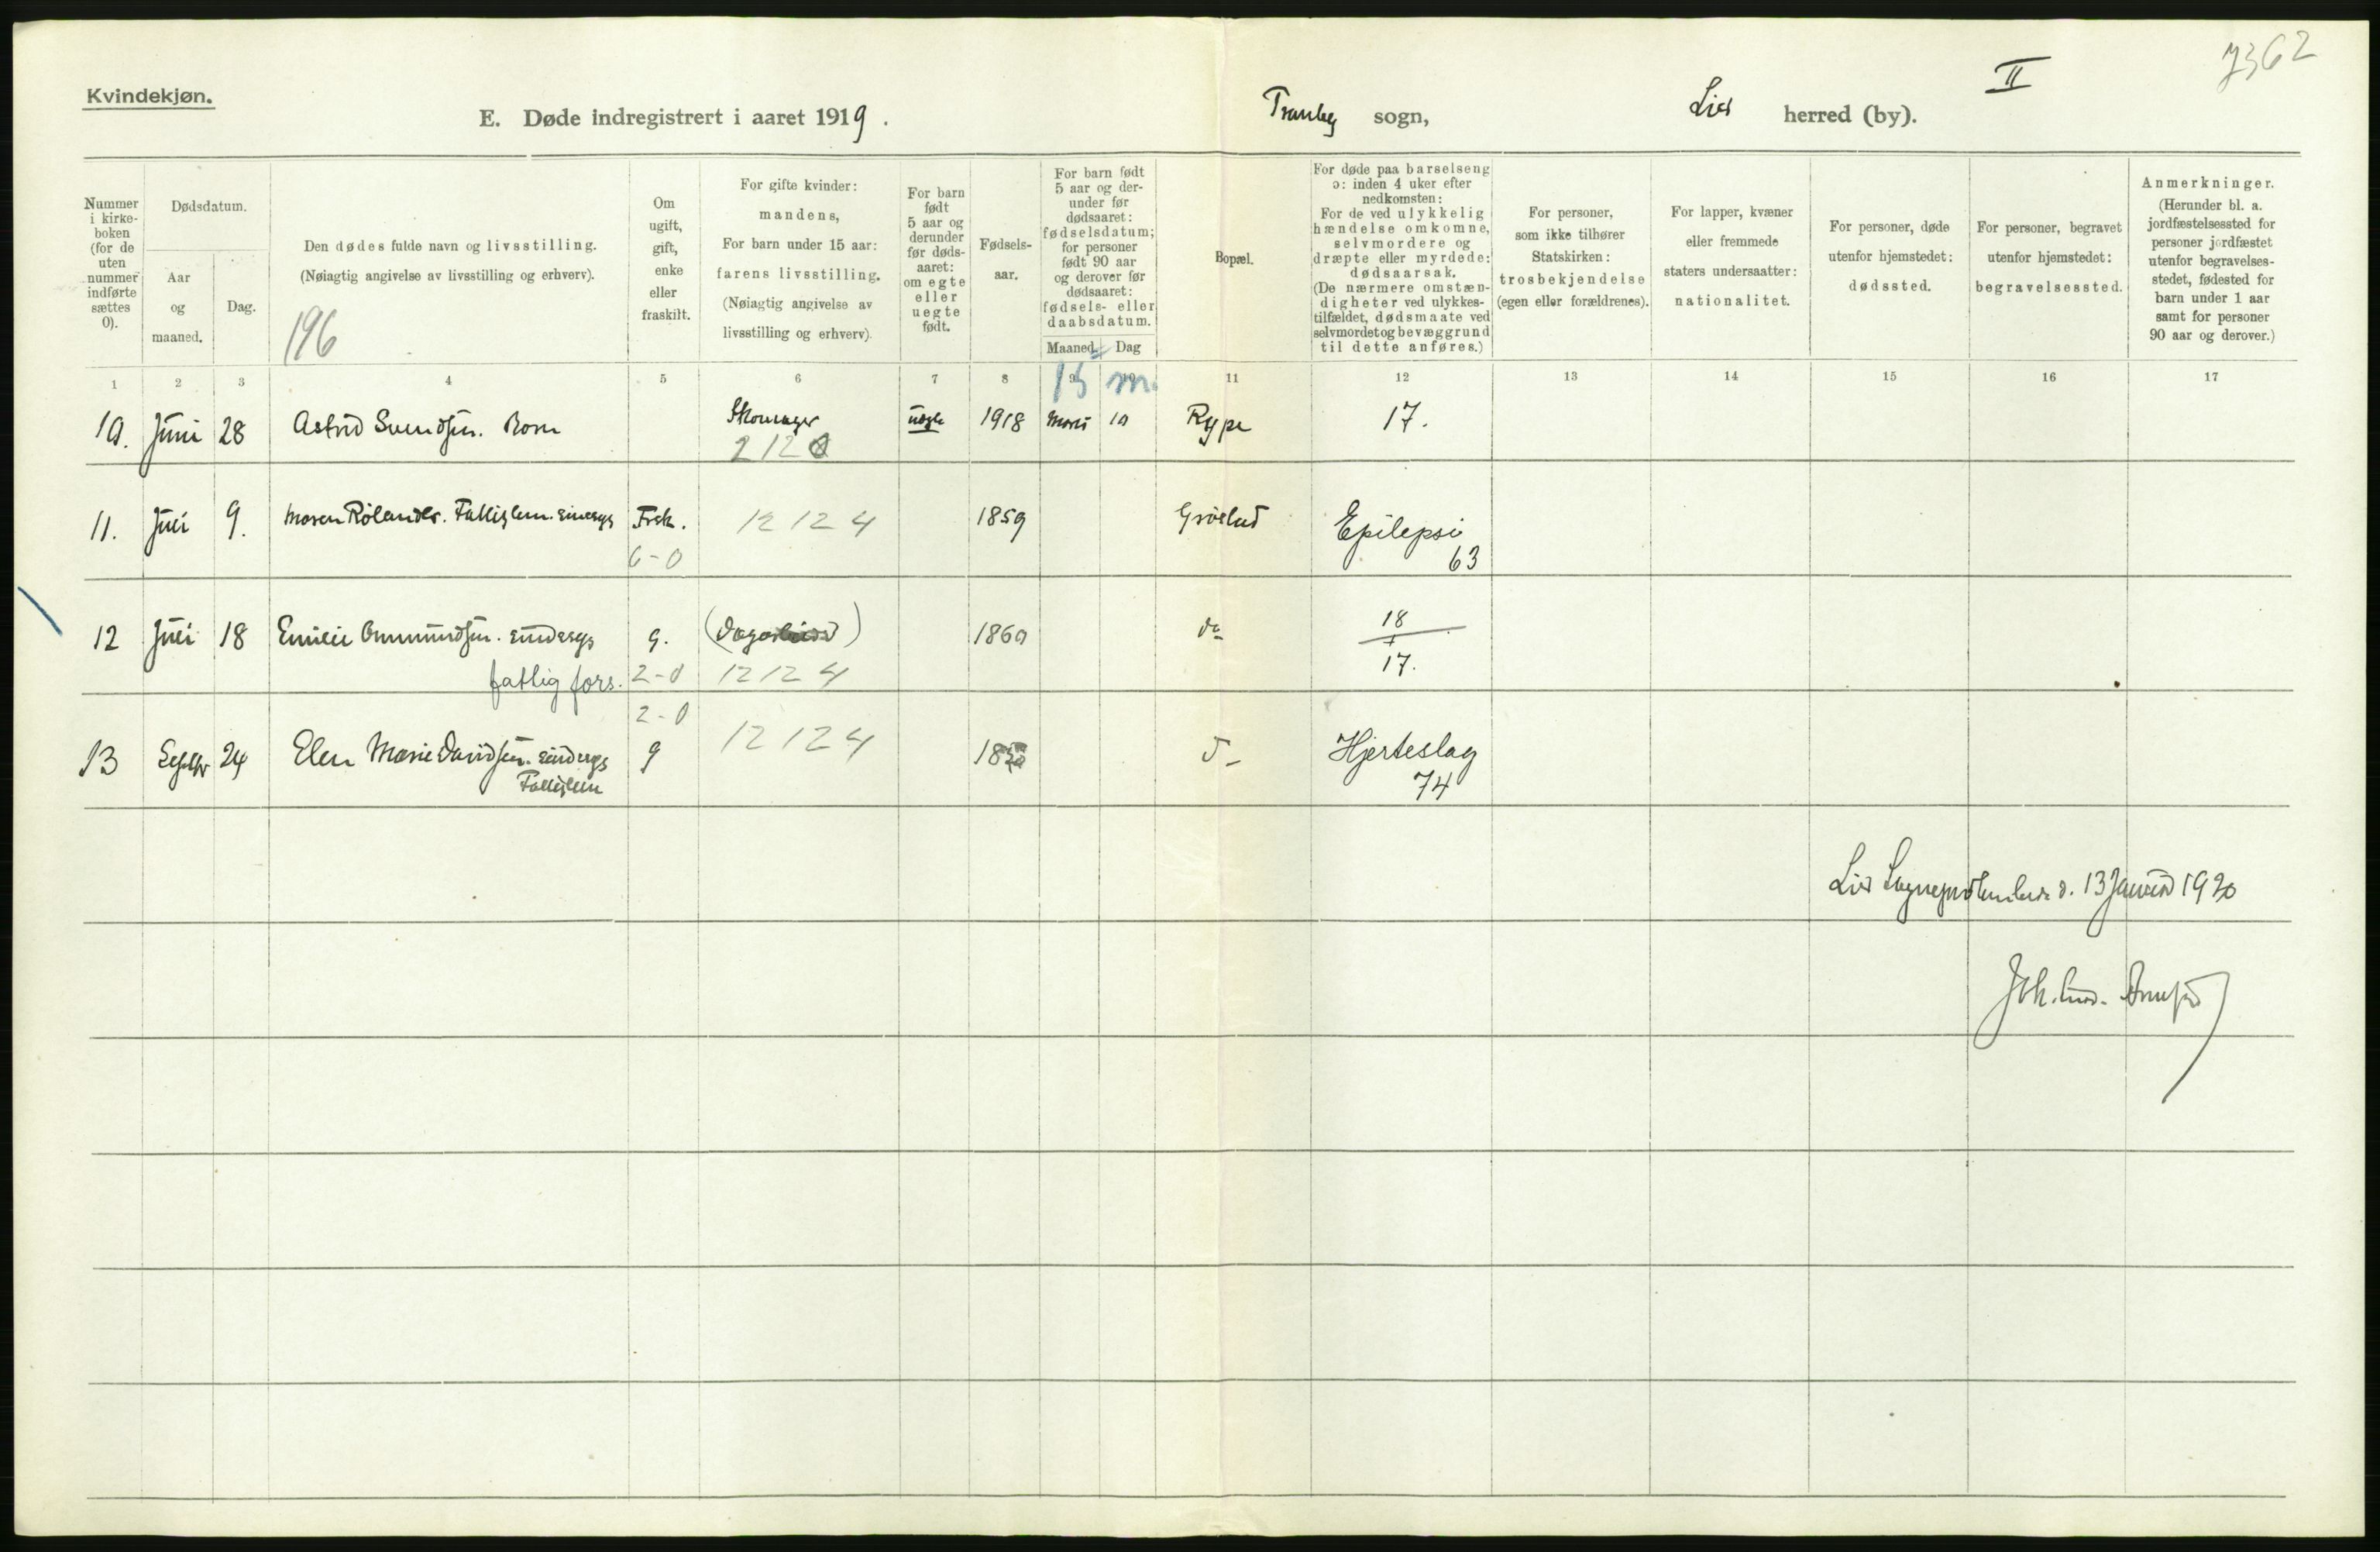 7362
II
Kvindekjøn.
E. Døde indregistrert i aaret 1919. Tranby sogn, Lier herred (by).
Nummer i kirkeboken (for de uten nummer indførte sættes 0).
Dødsdatum.
Aar og maaned.
Dag.
Den dødes fulde navn og livsstilling.
(Nøiagtig angivelse av livsstilling og erhverv).
196
Om ugift, gift, enke eller fraskilt.
For gifte kvinder: mandens,
For barn under 15 aar: farens livsstilling.
(Nøiagtig angivelse av livsstilling og erhverv).
For barn født 5 aar og derunder før dødsaaret: om egte eller uegte født.
Fødselsaar.
For barn født 5 aar og derunder før dødsaaret: fødselsdatum; for personer født 90 aar og derover før dødsaaret: fødsels- eller daabsdatum.
Maaned. Dag
Bopæl.
For døde paa barselseng ɔ: inden 4 uker efter nedkomsten:
For de ved ulykkelig hændelse omkomne, selvmordere og dræpte eller myrdede: dødsaarsak.
(De nærmere omstændigheter ved ulykkestilfældet, dødsmaate ved selvmordet og bevæggrund til dette anføres.)
For personer, som ikke tilhører Statskirken: trosbekjendelse (egen eller forældrenes).
For lapper, kvæner eller fremmede staters undersaatter: nationalitet.
For personer, døde utenfor hjemstedet: dødssted.
For personer, begravet utenfor hjemstedet: begravelsessted.
Anmerkninger.
(Herunder bl. a. jordfæstelsessted for personer jordfæstet utenfor begravelsesstedet, fødested for barn under 1 aar samt for personer 90 aar og derover.)
1 2 3 4 5 6 7 8 9 10 11 12 13 14 15 16 17
15 m.
10. Juni 28 Astrid Svendsen. Barn Skomager uegte 1918 Marts 10 Rype 17.
2120
11. Juli 9. Maren Rølander. Fattiglem. sindssyg Frsk. 12124 1859 Grøslad Epilepsi
6-0 63
12 Juli 18 Emilie Ommundsen. sindssyg g. 1860 do 18
fattig fors. 2-0 12124 17.
2-0
13 Septbr 24 Elen Marie Davidsen. sindssyg g 12124 Hjerteslag
Fattiglem 74
Lier d. 13 Januar 1920
Joh.